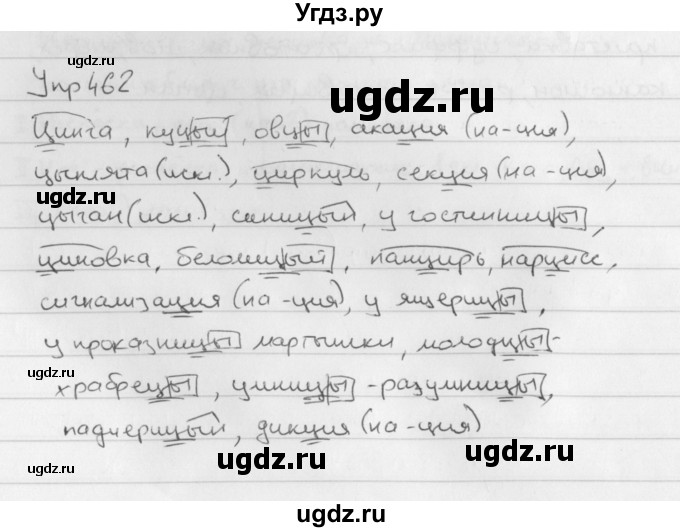 Угдз.ру
Упр 462
Цинга, куцый, овцы, акация (на -ция),
цыплята (искл.), циркуль, секция (на -ция),
цыган (искл.), синицый, у гостиницы,
циновка, белолицый, панцирь, нарцисс,
сигнализация (на -ция), у ящерицы,
у проказницы мартышки, молодцы-
храбрецы, умницы-разумницы,
падчерицый, дикция (на -ция)
ugdz.ru
ugdz.ru
ugdz.ru
ugdz.ru
ugdz.ru
ugdz.ru
ugdz.ru
ugdz.ru
ugdz.ru
ugdz.ru
ugdz.ru
Угдз.ру